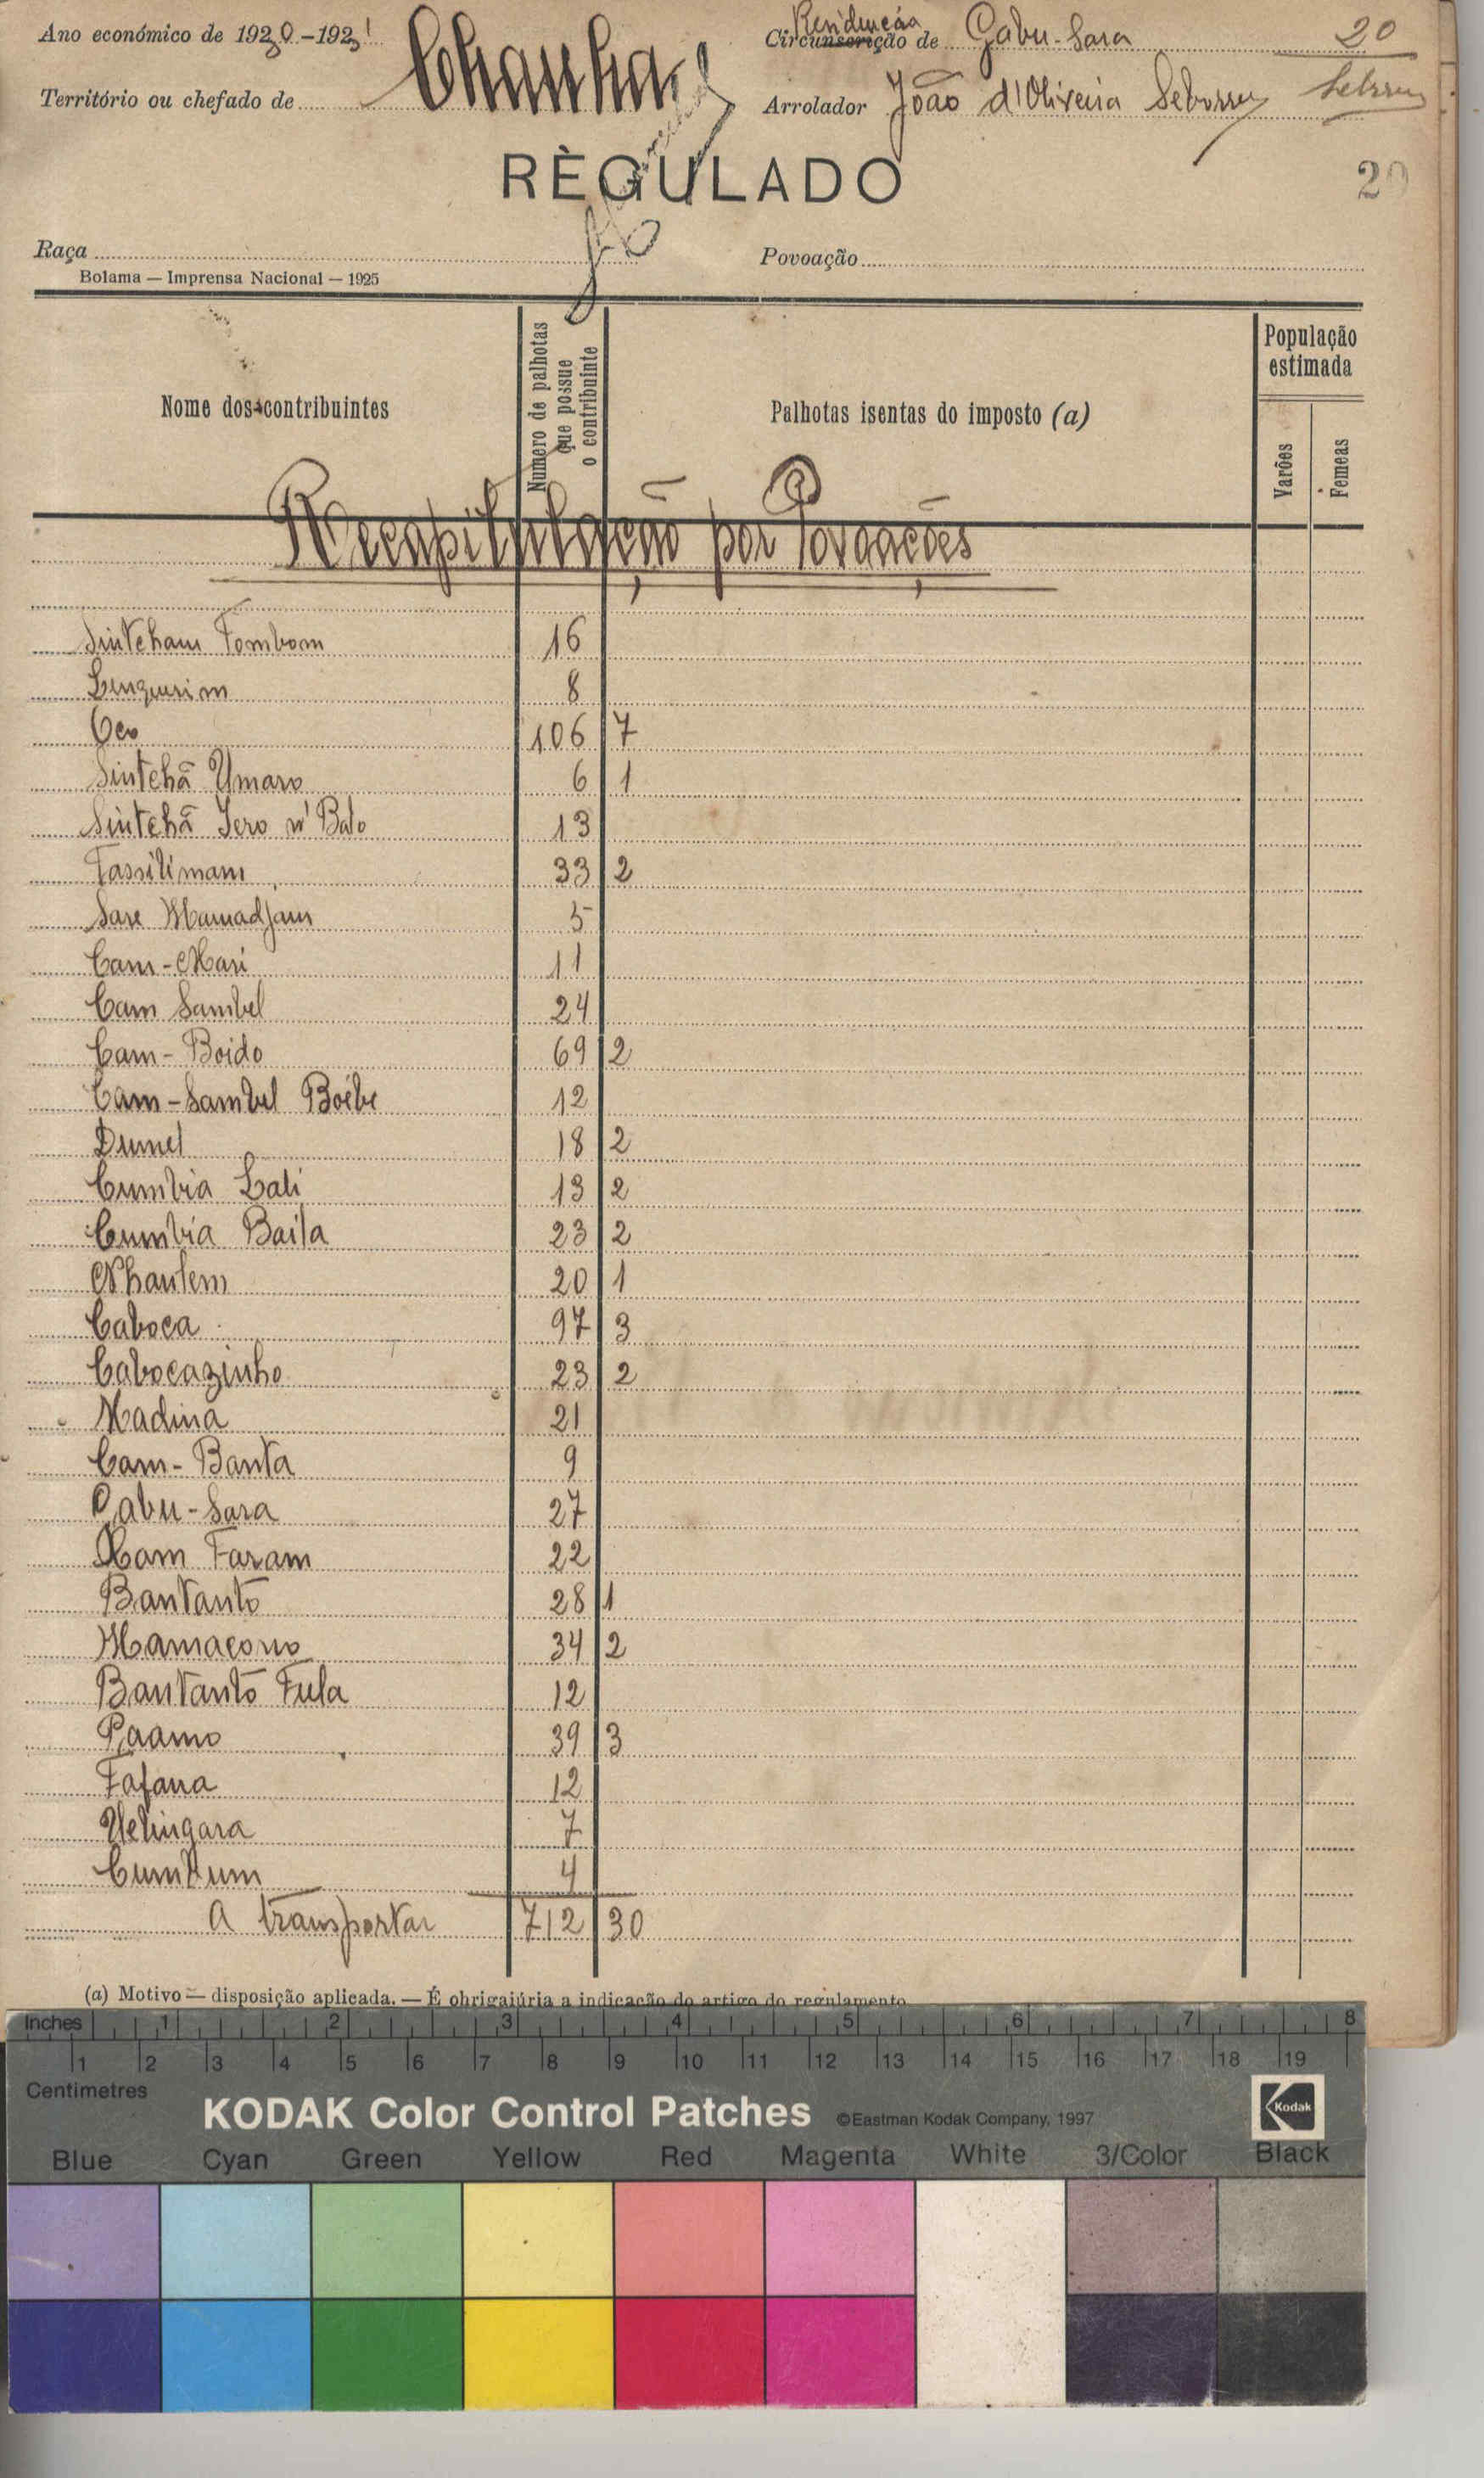 Ano económico de 1930-1931
Residencia
Circunscrição de Gabu-Sara
20
Território ou chefado de Chanha
Arrolador João d'Oliveira
RÈGULADO
20
Raça
Povoação
Bolama — Imprensa Nacional — 1925
Nome dos contribuintes
Numero de palhotas que possue o contribuinte
Palhotas isentas do imposto (a)
População estimada
Varões
Femeas
Recapitulação por Povoações
Sintcham Tombom 16
8
Oco 106 7
Sintchã Umaro 6 1
Sintchã Iero n'Bato 13
Tassilimam 33 2
Sare Mamadjam 5
Cam-Mari 11
Cam Sambel 24
Cam-Boido 69 2
Cam-Sambel Boébe 12
Dumel 18 2
Cumbia Lali 13 2
Cumbia Baila 23 2
Nhantem 20 1
Caboca 97 3
Cabocazinho 23 2
Madina 21
Cam-Banta 9
Gabu-Sara 27
Cam Faram 22
Bantantõ 28 1
Mamacono 34 2
Bantantõ Fula 12
Paamo 39 3
Fafana 12
Uelingara 7
Cumtum 4
A transportar 712 30
(a) Motivo — disposição aplicada. — É obrigatória a indicação do artigo do regulamento
Inches 1 2 3 4 5 6 7 8
1 2 3 4 5 6 7 8 9 10 11 12 13 14 15 16 17 18 19
Centimetres
KODAK Color Control Patches ©Eastman Kodak Company, 1997 Kodak
Blue Cyan Green Yellow Red Magenta White 3/Color Black